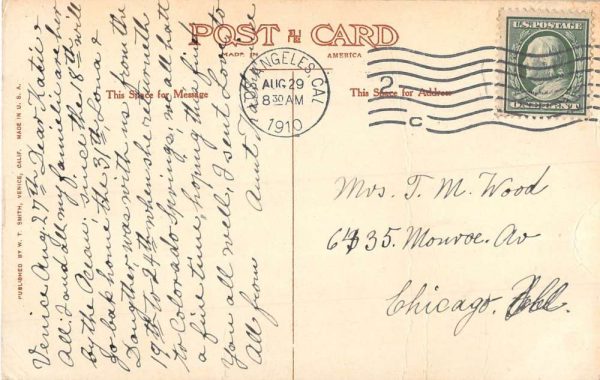 POST CARD
MADE IN AMERICA
This Space for Message
This Space for Address
PUBLISHED BY W. T. SMITH, VENICE, CALIF. MADE IN U. S. A.
LOS ANGELES, CAL
AUG 29
8 30 AM
1910
2
C
U.S. POSTAGE
ONE CENT
Venice Aug. 27th Dear Katie &
All. I and all my famielie are here
by the Ocean, since the 8th will
go back home the 31th, Lona &
Daugther was with us from the
19th to 24th when she returneth
to Colorado Springs, we all hath
a fine time, hoping this find
You all well, I sent Love to
All from Aunt
Mrs. T. M. Wood
6435. Monroe. Av
Chicago. Ill.